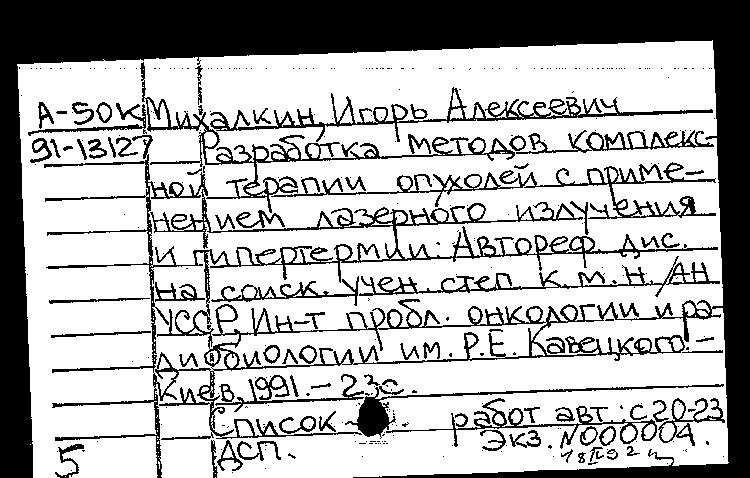 А-50К Михалкин, Игорь Алексеевич
91-13127 Разработка методов комплекс-
ной терапии опухолей с приме-
нением лазерного излучения
и гипертермии: Автореф. дис.
на соиск. учен. степ. к. м. н. /АН
УССР, Ин-т пробл. онкологии и ра-
диобиологии им. Р.Е. Кавецкого. -
Киев, 1991. - 23с.
Список работ авт.: с.20-23
Экз. N000004.
5 ДСП.